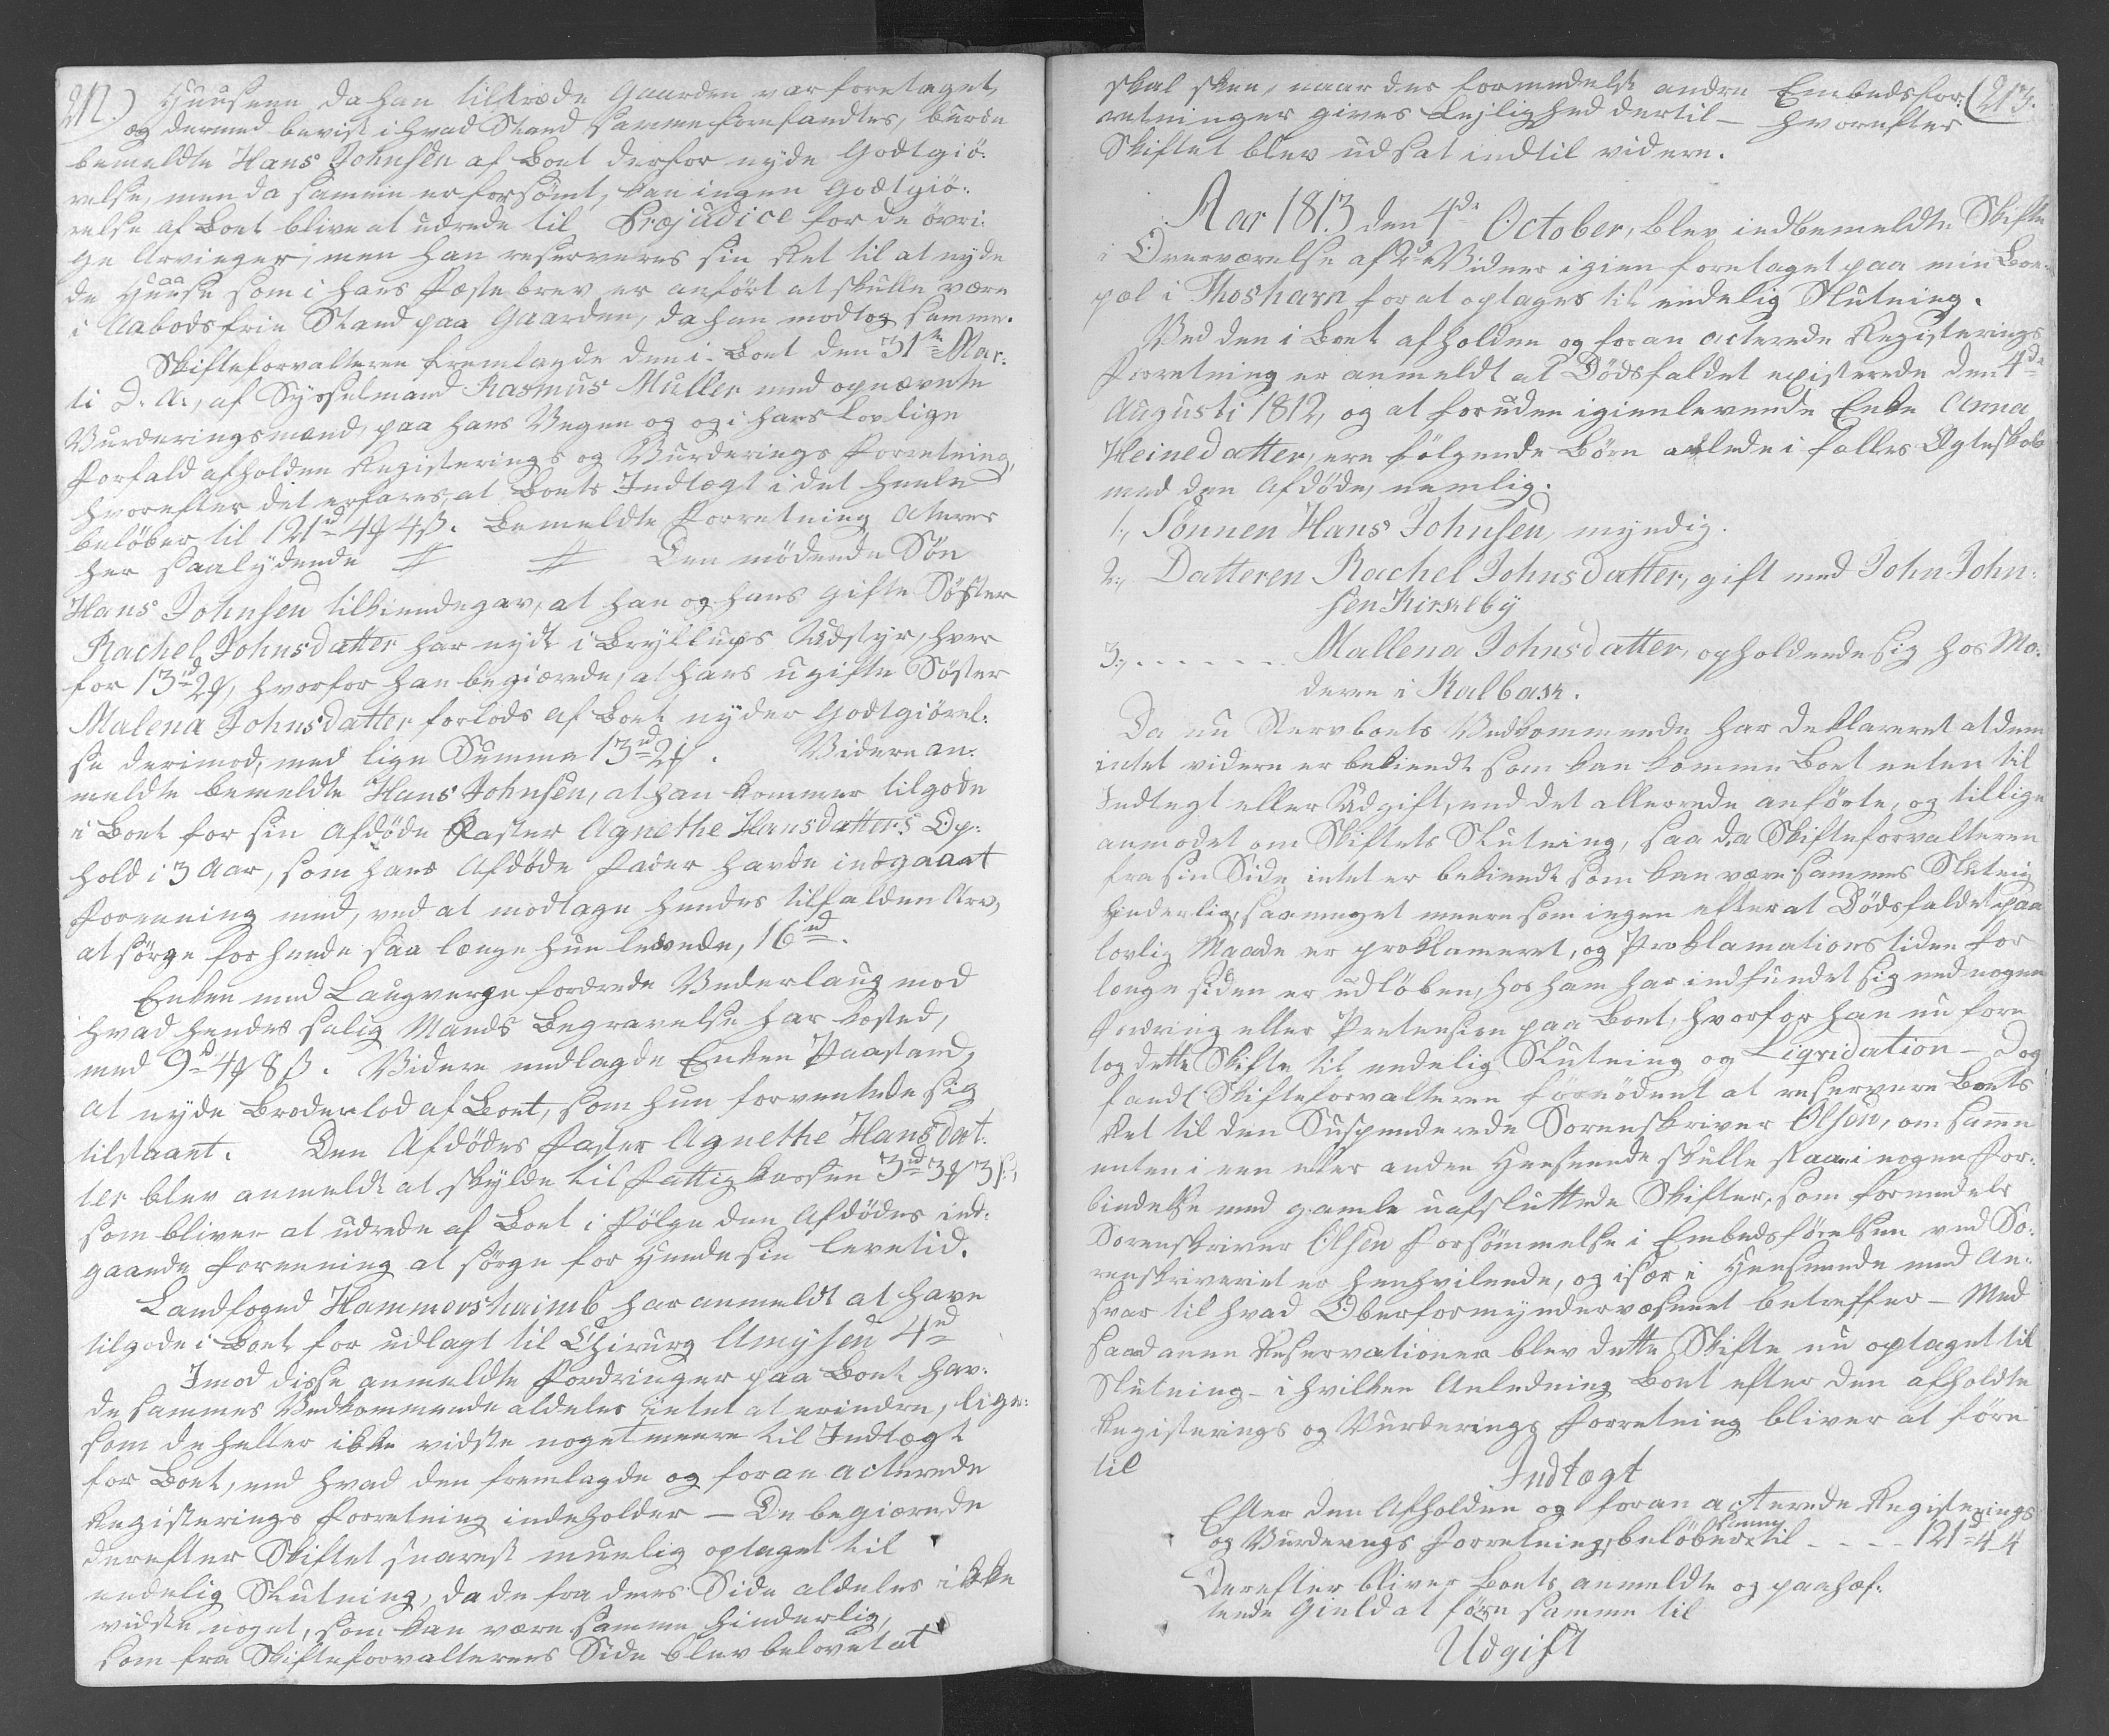 212.) Huusene, da han tiltræde Gaarden var foretaget,
og dermed bevist i hvad Stand samme forefandtes, burde
bemeldte Hans Johnsen af Boet derfor nyde Godtgiö-
relse, men da samme er forsömt, kan ingen Godtgiö-
relse af Boet blive at udrede til Præjudice for de övri-
ge Arvinger; men han reserveres sin Ret til at nyde
de Huuse som i hans Fæstebrev er anfört at skulle være
i Aabodsfrie Stand paa Gaarden, da han modtog samme.
Skifteforvalteren fremlagde den i Boet den 31te Mar-
ti d. A., af Sysselmand Rasmus Müller med opnævnte
Vurderingsmænd, paa hans Vegne og i hans lovlige
Forfald afholdene Registerings og Vurderings Forretning,
hvorefter det erfares at Boets Indtægt i det heele
belöber til 121rd 4ꝗ 4ß. Bemeldte Forretning acteres
her saalydende # # Den mödende Sön
Hans Johnsen tilkiendegav, at han og hans gifte Söster
Rachel Johnsdatter har nydt i Bryllups Udstyr, hver
for 13rd 2ꝗ, hvorfor han begiærede, at hans ugifte Söster
Malena Johnsdatter forlods af Boet nyder Godtgiörel-
se derimod, med lige Summa 13rd 2ꝗ. Videre an-
meldte bemeldte Hans Johnsen, at han kommer tilgode
i Boet for sin afdöde Faster Agnethe Hansdatters Op-
hold i 3 Aar, som hans Afdöde Fader havde indgaaet
Foreening med, ved at modtage hendes tilfaldene Arv,
at sörge for hende saa længe hun levede, 16rd.
Enken med Laugverge fordrede Vederlaug mod
hvad hendes salig Mands Begravelse har kosted,
med 9rd 4ꝗ 8ß. Videre nedlagde Enken Paastand,
at nyde Broderlod af Boet, som hun forventede sig
tilstaaet. Den Afdödes Faster Agnethe Hansdat-
ter blev anmeldt at skylde til Fattigkassen 3rd 3ꝗ 3ß,
som bliver at udrede af Boet i Fölge den Afdödes ind-
gaaede Foreening at sörge for hende sin Levetid.
Landfoged Hammershaimb har anmeldt at have
tilgode i Boet for udlagt til Chirurg Amysen 4rd
Imod disse anmeldte Fordringer paa Boet hav-
de sammes Vedkommende aldeles intet at erindre, lige-
som de heller ikke vidste noget meere til Indtægt
for Boet, end hvad den fremlagde og foran acterede
Registerings Forretning indeholder — De begiærede
derefter Skiftet snarest muelig optaget til
endelig Slutning, da de fra deres Side aldeles ikke
vidste noget, som kan være samme hinderlig,
som fra Skifteforvalterens Side blev belovet at
skal skee, naar der formedelst andre Embedsfor- (213.
retninger gives Lejlighed dertil — hvorefter
Skiftet blev udsat indtil videre.
Aar 1813 den 4de October, blev indbemeldte Skifte
i Overværelse af 2de Vidner igien foretaget paa min Boe-
pæl i Thoshavn for at optages til endelig Slutning.
Ved den i Boet afholdene og foran acterede Registerings
Forretning er anmeldt at Dödsfaldet existerede den 4de
Augusti 1812, og at foruden igienlevende Enke Anna
Heinedatter, ere fölgende Börn avlede i fælles Ægteskab
med den Afdöde, nemlig:
1., Sönnen Hans Johnsen, myndig.
2., Datteren Rachel Johnsdatter, gift med John John-
sen Kirkeby
3., . . . . . . Mallena Johnsdatter, opholdende sig hos Mo-
deren i Kalbak.
Da nu Stervboets Vedkommende har deklareret at dem
intet videre er bekiendt som kan komme Boet enten til
Indtægt eller Udgift, end det allerede anförte, og tillige
anmodet om Skiftets Slutning, saa da Skifteforvalteren
fra sin Side intet er bekiendt som kan være sammes Slutnig
hinderlig, saameget meere som ingen efter at Dödsfaldet paa
lovlig Maade er proklameret, og Proklamationstiden for
længe siden er udlöben, hos ham har indfundet sig med nogen
Fordring eller Pretension paa Boet, hvorfor han nu fore
tog dette Skifte til endelig Slutning og Liqvidation — Dog
fandt Skifteforvalteren fornödent at reservere Boets
Ret til den Suspenderede Sorenskriver Olsen, om samme
enten i een eller anden Henseende skulle staae i nogen For-
bindelse med gamle uafsluttede Skifter, som formedelst
Sorenskriver Olsen Forsömmelse i Embedsförelsen ved So-
renskriveriet er henhvilende, og især i Henseende med An-
svar til hvad Oberformyndervæsenet betreffer — Med
saadanne Reservationer blev dette Skifte nu optaget til
Slutning — i hvilken Anledning Boet efter den afholdte
Registerings og Vurderings Forretning bliver at före
til
Indtægt
Efter den Afholdene og foran acterede Registerings
og Vurderings Forretning, belöber samme til - - - - 121rd 4 4
Derefter bliver Boets anmeldte og paahæf-
tende Gield at före samme til
Udgift